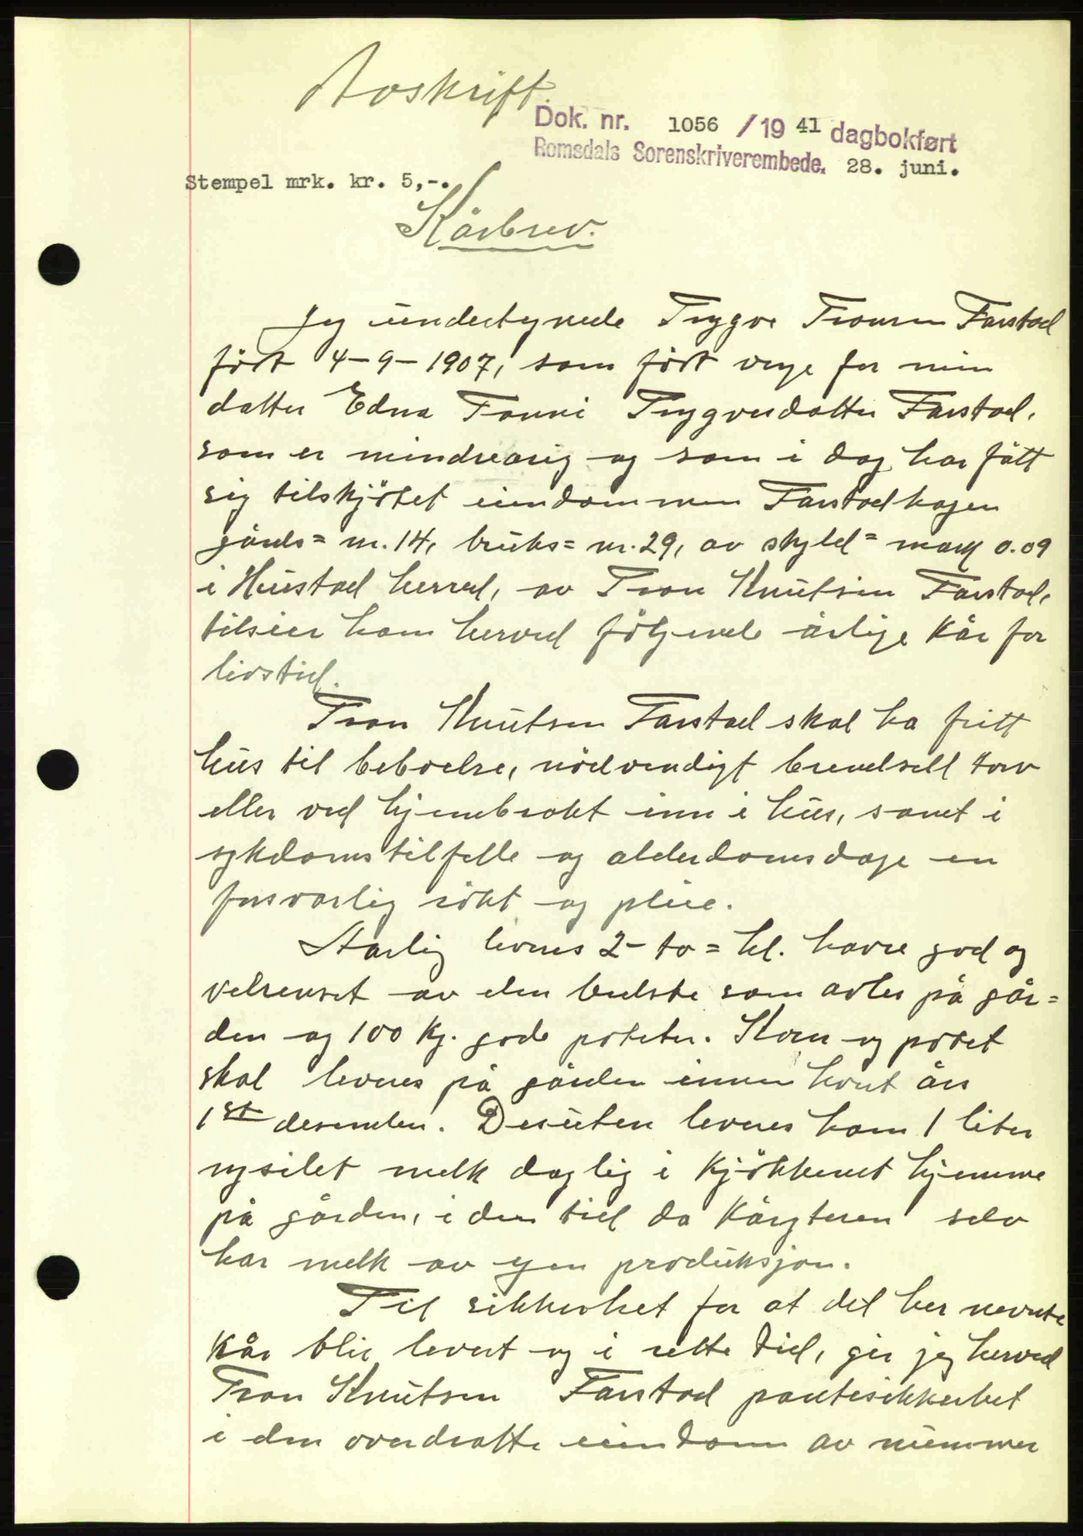 Avskrift.
Dok. nr. 1056 / 19 41 dagbokført
Romsdals Sorenskriverembede. 28. juni.
Stempel mrk. kr. 5,-.
Kårbrev.
Jeg undertegnede Trygve Tronsen Farstad
født 4-9-1907, som født verge for min
datter Edna Fanni Trygvesdatter Farstad,
som er mindreårig og som i dag har fått
sig tilskjötet eiendommen Farstadhagen
gårds= nr. 14, bruks= nr. 29, av skyld= mark 0.09
i Hustad herred, av Tron Knutsen Farstad,
tilsier ham herved följende årlige kår for
livstid.
Tron Knutsen Farstad skal ha fritt
hus til beboelse, nödvendigt brendsell torv
eller ved hjembrakt inn i hus, samt i
sykdomstilfelle og alderdomsdage en
forsvarlig rökt og pleie.
Årlig leveres 2- to= hl. havre god og
velrenset av den bedste som avles på går=
den og 100 kg. gode poteter. Korn og potet
skal leveres på gården innen hvert års
1st desember. Desuten leveres ham 1 liter
nysilet melk daglig i kjökkenet hjemme
på gården, i den tid da kårgteren selv
har melk av egen produksjon.
Til sikkerhet for at det her nevnte
kår blir levert og i rette tid, gir jeg herved
Tron Knutsen Farstad pantesikkerhet
i den overdratte eiendom av nummer